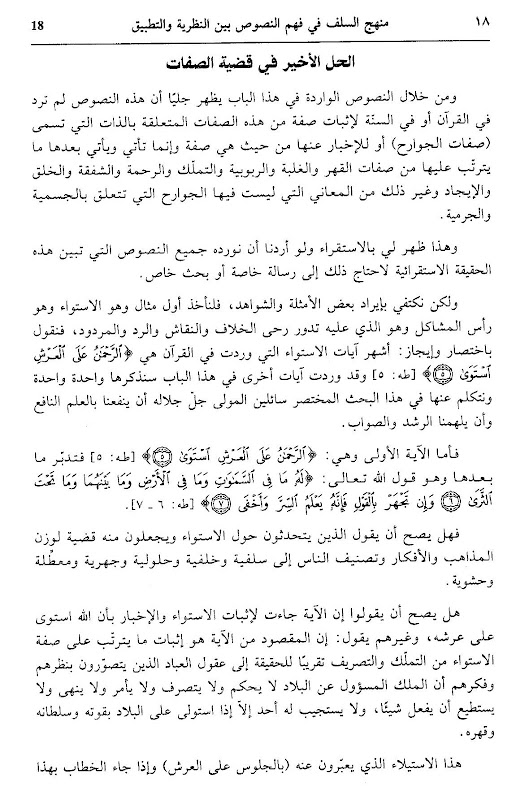 ١٨ منهج السلف في فهم النصوص بين النظرية والتطبيق 18
الحل الأخير في قضية الصفات
ومن خلال النصوص الواردة في هذا الباب يظهر جليًا أن هذه النصوص لم ترد
في القرآن أو في السنّة لإثبات صفة من هذه الصفات المتعلقة بالذات التي تسمى
(صفات الجوارح) أو للإخبار عنها من حيث هي صفة وإنما تأتي ويأتي بعدها ما
يترتّب عليها من صفات القهر والغلبة والربوبية والتملّك والرحمة والشفقة والخلق
والإيجاد وغير ذلك من المعاني التي ليست فيها الجوارح التي تتعلق بالجسمية
والجرمية.
وهذا ظهر لي بالاستقراء ولو أردنا أن نورده جميع النصوص التي تبين هذه
الحقيقة الاستقرائية لاحتاج ذلك إلى رسالة خاصة أو بحث خاص.
ولكن نكتفي بإيراد بعض الأمثلة والشواهد، فلنأخذ أول مثال وهو الاستواء وهو
رأس المشاكل وهو الذي عليه تدور رحى الخلاف والنقاش والرد والمردود، فنقول
باختصار وإيجاز: أشهر آيات الاستواء التي وردت في القرآن هي ﴿ٱلرَّحْمَٰنُ عَلَى ٱلْعَرْشِ
ٱسْتَوَىٰ ۝٥﴾ [طه: ٥] وقد وردت آيات أخرى في هذا الباب سنذكرها واحدة واحدة
ونتكلم عنها في هذا البحث المختصر سائلين المولى جلّ جلاله أن ينفعنا بالعلم النافع
وأن يلهمنا الرشد والصواب.
فأما الآية الأولى وهي: ﴿ٱلرَّحْمَٰنُ عَلَى ٱلْعَرْشِ ٱسْتَوَىٰ ۝٥﴾ [طه: ٥] فتدبّر ما
بعدها وهو قول الله تعالى: ﴿لَهُۥ مَا فِى ٱلسَّمَٰوَٰتِ وَمَا فِى ٱلْأَرْضِ وَمَا بَيْنَهُمَا وَمَا تَحْتَ
ٱلثَّرَىٰ ۝٦ وَإِن تَجْهَرْ بِٱلْقَوْلِ فَإِنَّهُۥ يَعْلَمُ ٱلسِّرَّ وَأَخْفَى ۝٧﴾ [طه: ٦ ـ ٧].
فهل يصح أن يقول الذين يتحدثون حول الاستواء ويجعلون منه قضية لوزن
المذاهب والأفكار وتصنيف الناس إلى سلفية وخلفية وحلولية وجهرية ومعطّلة
وحشوية.
هل يصح أن يقولوا إن الآية جاءت لإثبات الاستواء والإخبار بأن الله استوى
على عرشه، وغيرهم يقول: إن المقصود من الآية هو إثبات ما يترتّب على صفة
الاستواء من التملّك والتصريف تقريبًا للحقيقة إلى عقول العباد الذين يتصوّرون بنظرهم
وفكرهم أن الملك المسؤول عن البلاد لا يحكم ولا يتصرف ولا يأمر ولا ينهى ولا
يستطيع أن يفعل شيئًا، ولا يستجيب له أحد إلاّ إذا استولى على البلاد بقوته وسلطانه
وقهره.
هذا الاستيلاء الذي يعبّرون عنه (بالجلوس على العرش) وإذا جاء الخطاب بهذا